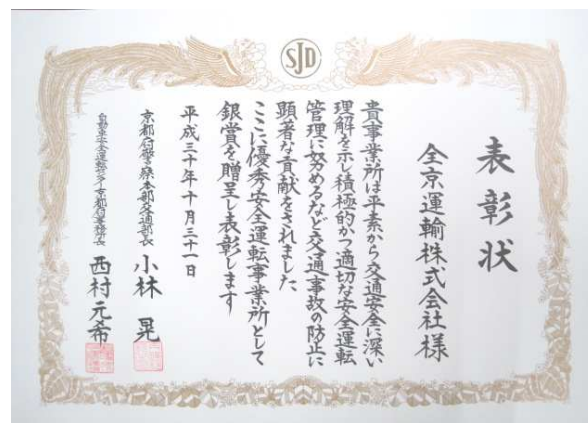 SJD
表彰状
全京運輸株式会社様
貴事業所は平素から交通安全に深い
理解を示し積極的かつ適切な安全運転
管理に努めるなど交通事故の防止に
顕著な貢献をされました
ここに優秀安全運転事業所として
銀賞を贈呈し表彰します
平成三十年十月三十一日
京都府警察本部交通部長 小林 晃
自動車安全運転センター京都府事務所長 西村元希